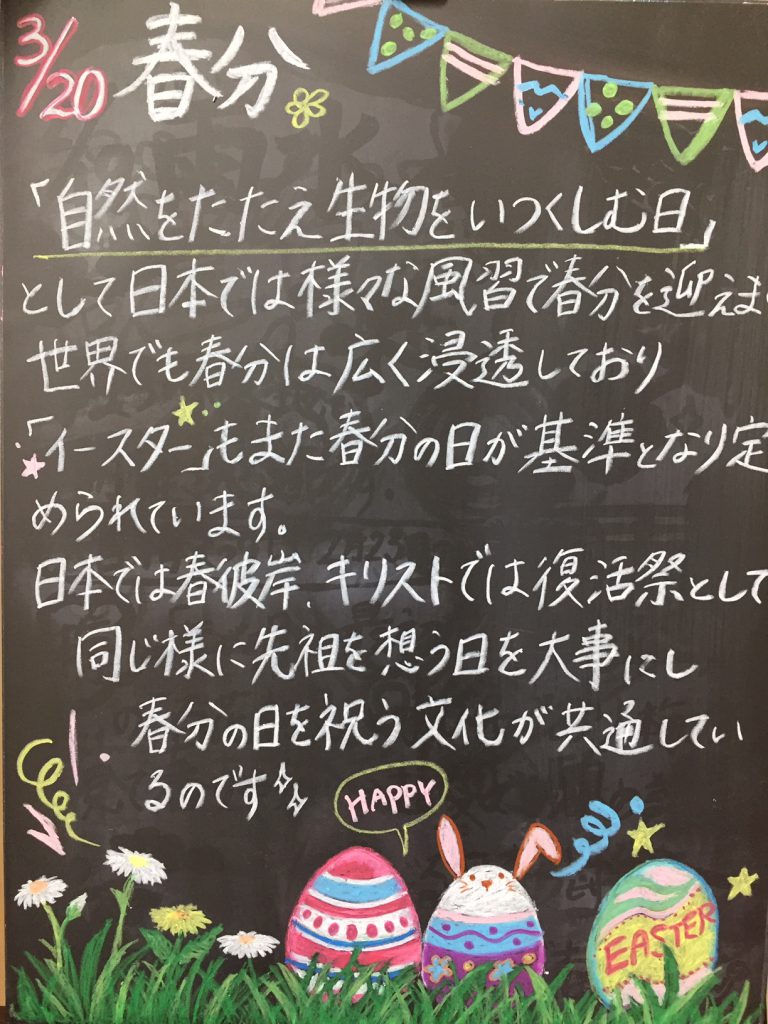 3/20 春分
「自然をたたえ生物をいつくしむ日」
として日本では様々な風習で春分を迎えま
世界でも春分は広く浸透しており
「イースター」もまた春分の日が基準となり定
められています。
日本では春彼岸、キリストでは復活祭として
同じ様に先祖を想う日を大事にし
春分の日を祝う文化が共通してい
るのです
HAPPY
EASTER